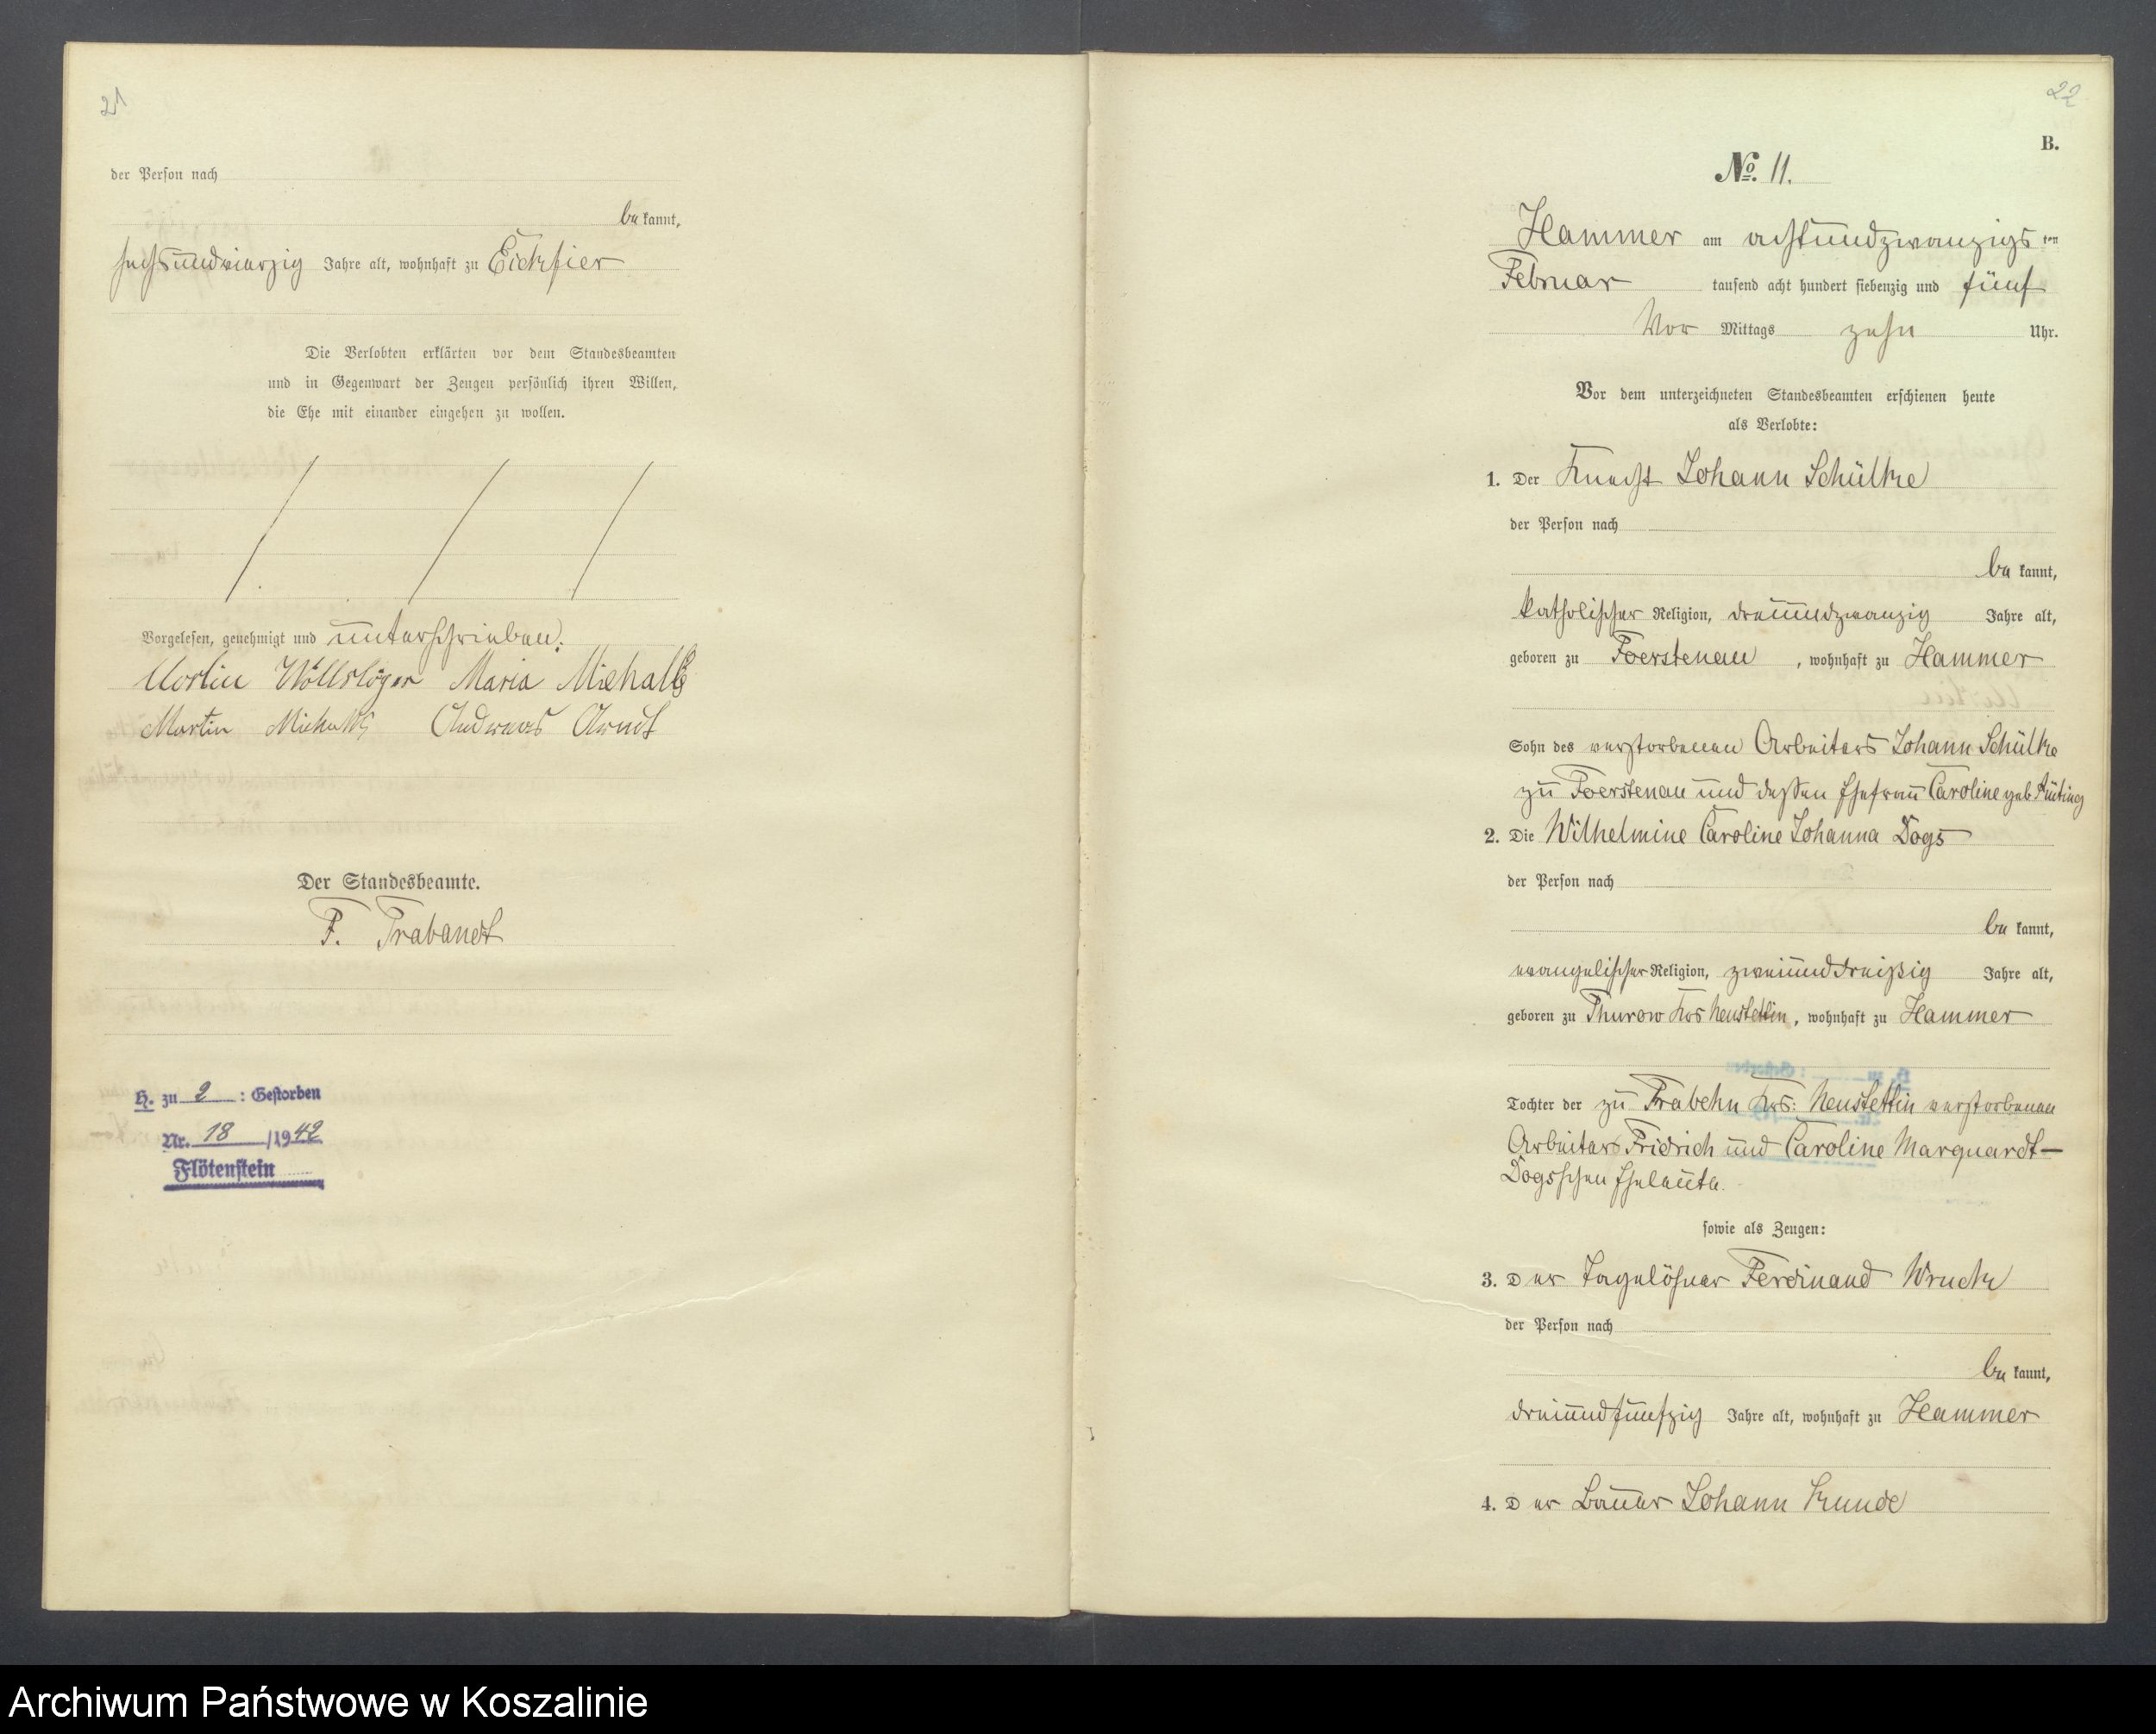 21
der Person nach
be kannt,
sechsundvierzig Jahre alt, wohnhaft zu Eichfier
Die Verlobten erklärten vor dem Standesbeamten
und in Gegenwart der Zeugen persönlich ihren Willen,
die Ehe mit einander eingehen zu wollen.
Vorgelesen, genehmigt und unterschrieben:
Maria
Martin Andreas Arndt
Der Standesbeamte.
F. Trabandt
H. zu 2 : Gestorben
Nr. 18 /1942
Flötenstein
22
B.
No. 11.
Hammer am achtundzwanzigs ten
Februar tausend acht hundert siebenzig und fünf
Vor Mittags zehn Uhr.
Vor dem unterzeichneten Standesbeamten erschienen heute
als Verlobte:
1. Der Knecht Johann Schülke
der Person nach
be kannt,
katholischer Religion, dreiundzwanzig Jahre alt,
geboren zu Foerstenau, wohnhaft zu Hammer
Sohn des verstorbenen Arbeiters Johann Schülke
zu Foerstenau und dessen Ehefrau Caroline geb
2. Die Wilhelmine Caroline Johanna Dogs
der Person nach
be kannt,
evangelischer Religion, zweiunddreißig Jahre alt,
geboren zu Thurow Krs Neustettin, wohnhaft zu Hammer
Tochter der zu Trabehn Krs: Neustettin verstorbenen
Arbeiter Fridrich und Caroline Marquardt-
Dogsschen Eheleute.
sowie als Zeugen:
3. D er Tagelöhner Ferdinand Wruck
der Person nach
be kannt,
dreiundfünfzig Jahre alt, wohnhaft zu Hammer
4. D er Bauer Johann Kunde
Archiwum Państwowe w Koszalinie